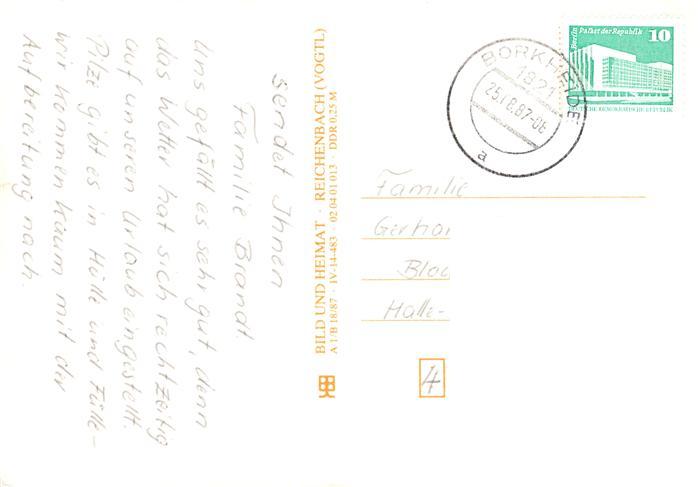 sendet Ihnen
Familie Brandt.
Uns gefällt es sehr gut, denn
das Wetter hat sich rechtzeitig
auf unseren Urlaub eingestellt.
Pilze gibt es in Hülle und Fülle -
wir kommen kaum mit der
Aufbereitung nach.
BILD UND HEIMAT · REICHENBACH (VOGTL)
A 1/B 18/87 · IV-14-483 · 02 04 01 013 · DDR 0,25 M
Berlin Palast der Republik 10
DEUTSCHE DEMOKRATISCHE REPUBLIK
BORKHEIDE
1821
25.8.87-
a
Familie
Halle-
4